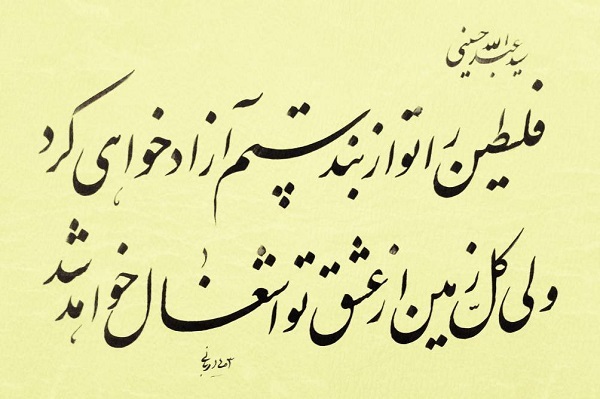 سید عبدالله حسینی
فلسطین را تو از بند ستم آزاد خواهی کرد
ولی کلّ زمین از عشق تو اشغال خواهد شد